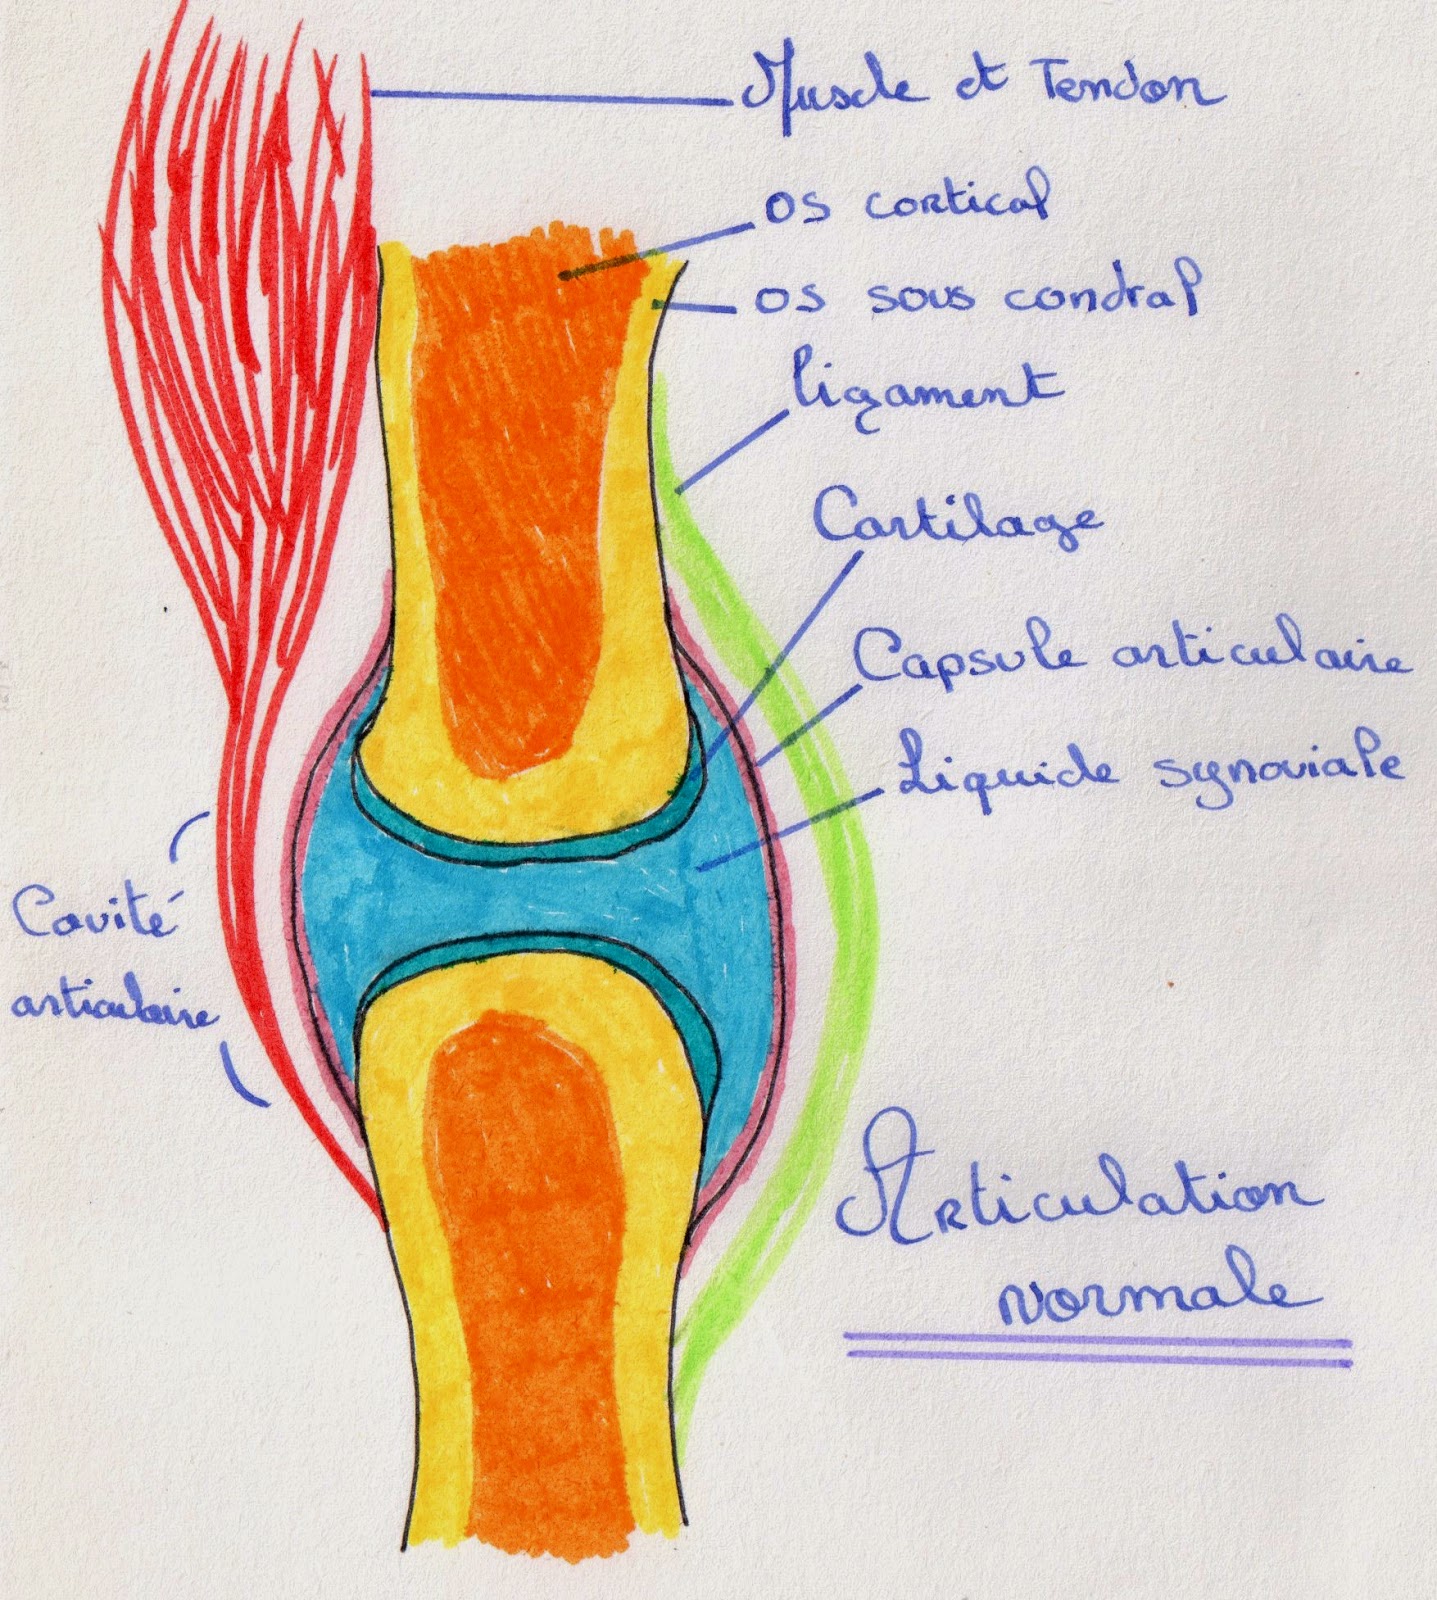 Muscle et Tendon
os cortical
os sous condral
ligament
Cartilage
Capsule articulaire
Liquide synoviale
Cavité
articulaire
Articulation
normale